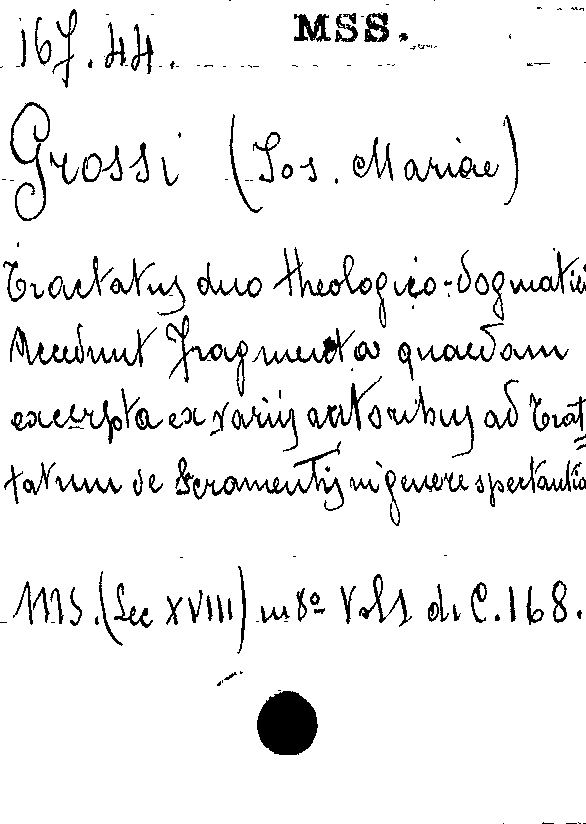 MSS.
167.44.
Grossi (Jos. Mariae)
Tractatus duo theologico-dogmatici
Accedunt fragmenta quaedam
excerpta ex variis autoribus ad Trac=
tatum de Scramentis in genere spectantia
MS. (Sec XVIII) in 8º Vol 1 di C. 168.